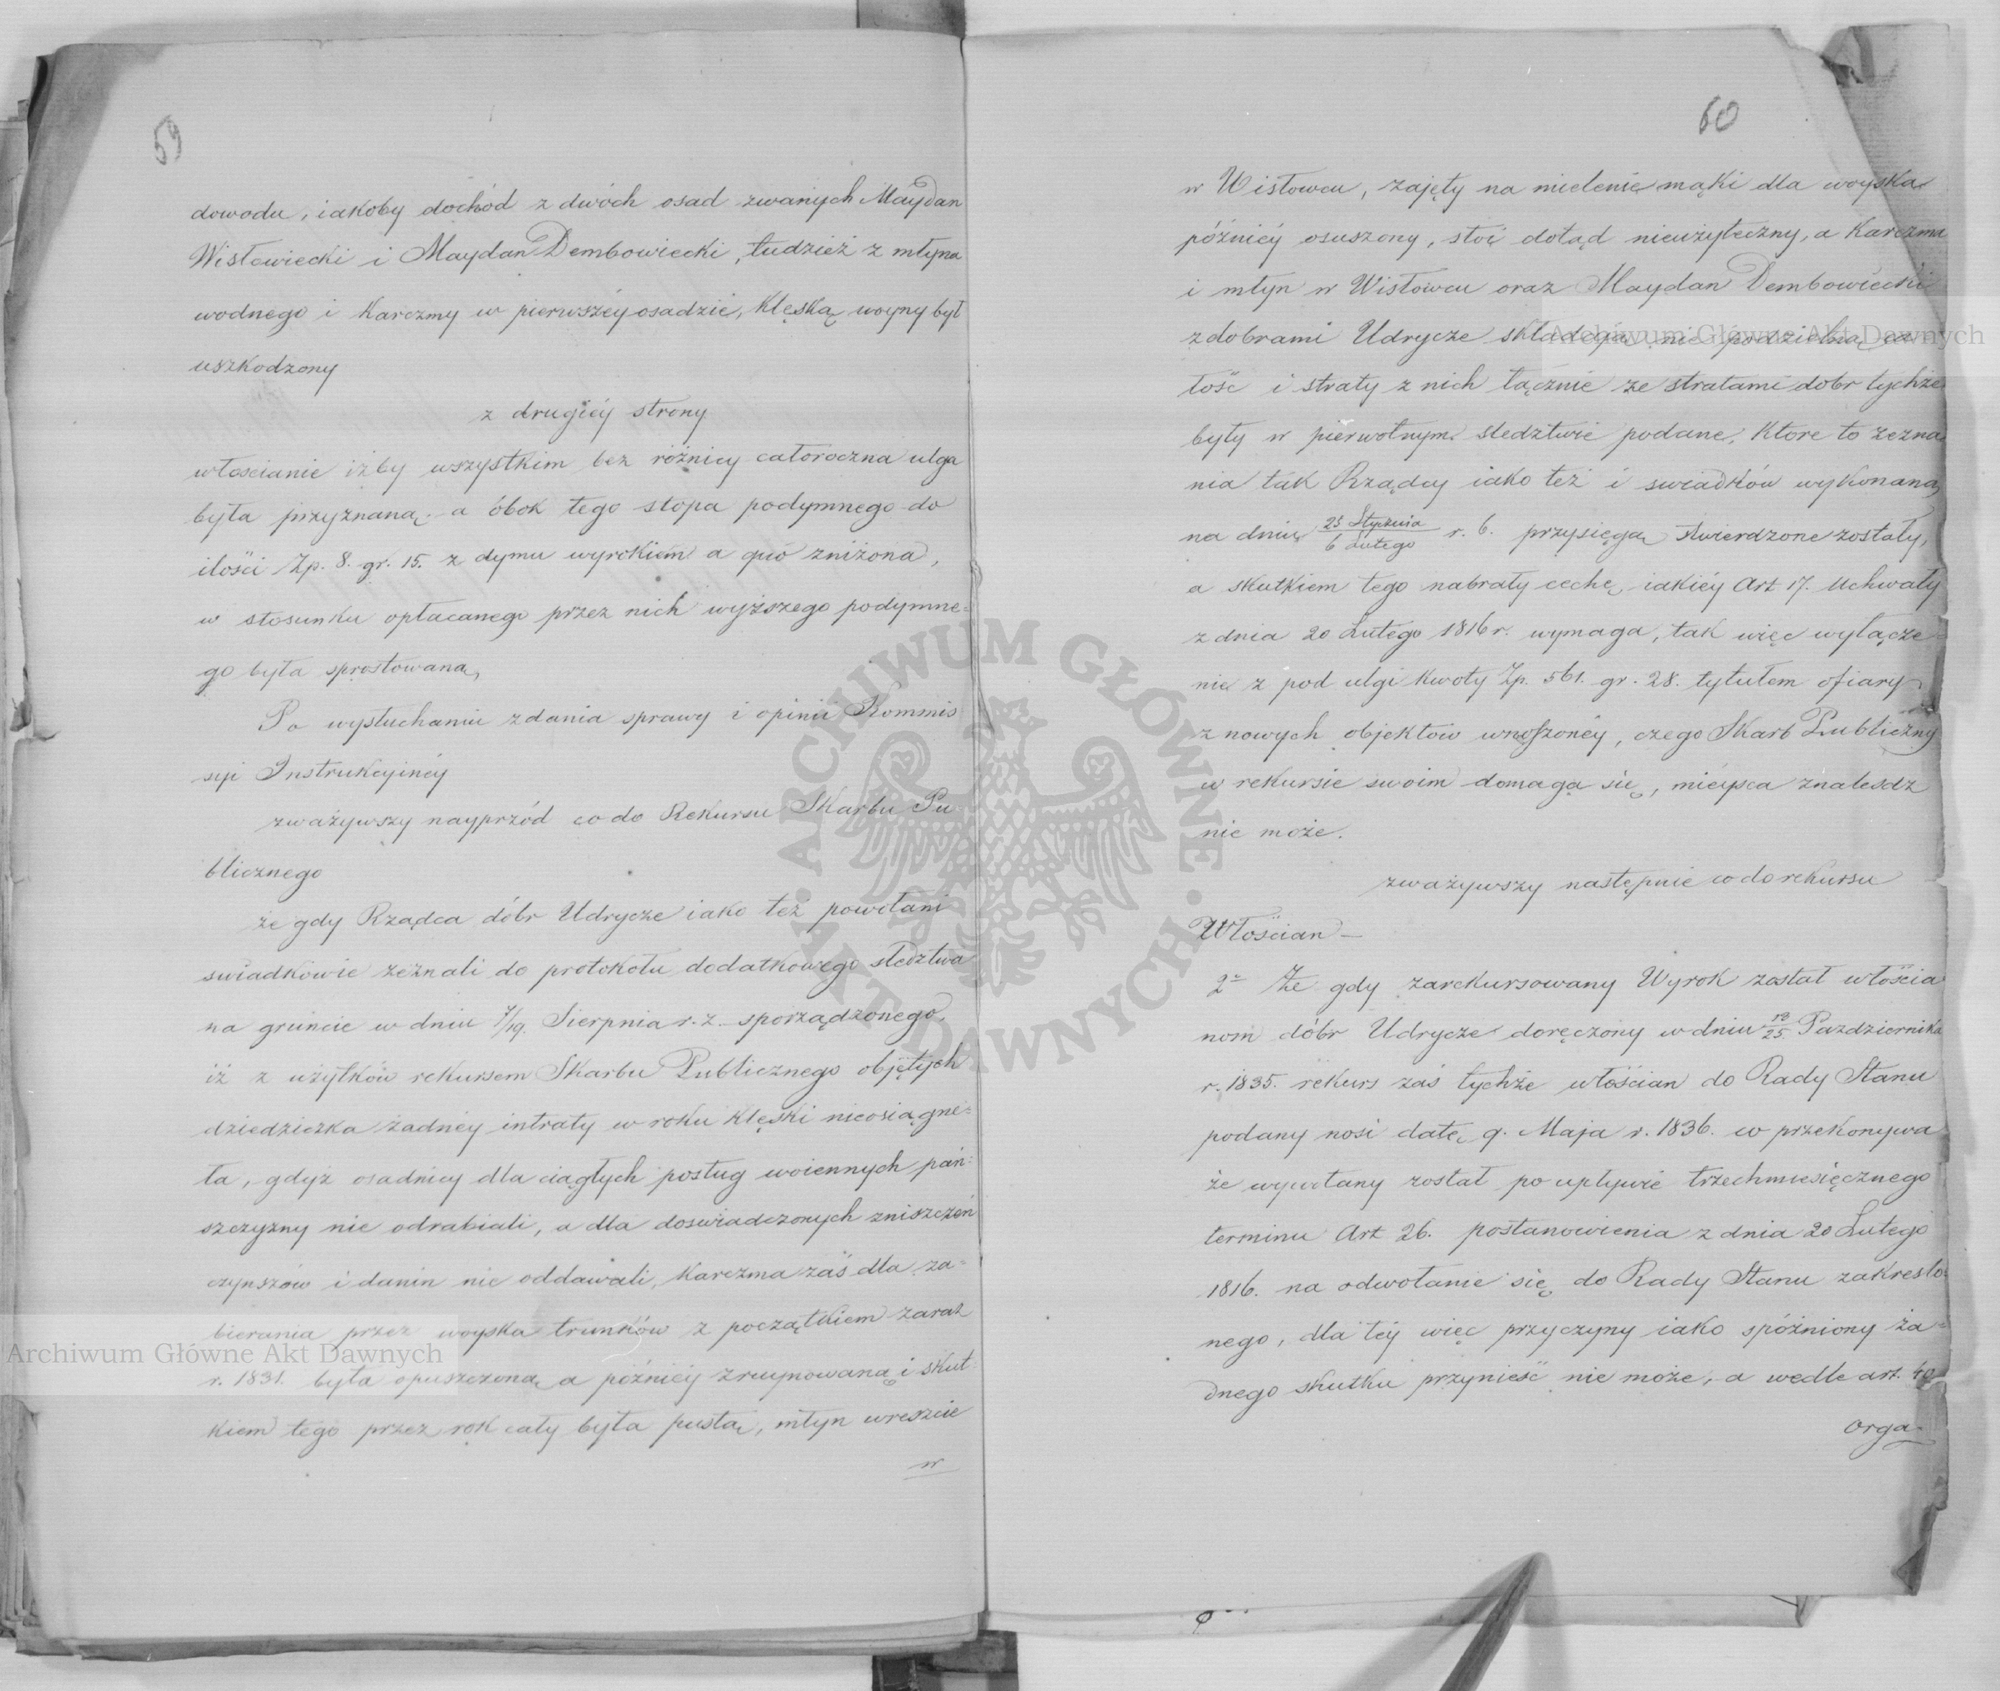 59
dowodu, iakoby dochód z dwóch osad zwanych Maydan
Wisłowiecki i Maydan Dembowiecki, tudzież z młyna
wodnego i Karczmy w pierwszéy osadzie, klęską woyny był
uszkodzony
z drugiéy strony
włościanie iżby wszystkim bez różnicy całoroczna ulga
była przyznaną, a obok tego stopa podymnego do
ilości Zp. 8. gr. 15. z dymu wyrokiem a quo zniżona,
w stosunku opłacanego przez nich wyższego podymne=
go była sprostowaną,
Po wysłuchaniu zdania sprawy i opinii Kommis
syi Instrukcyinéy
zważywszy nayprzód co do Rekursu Skarbu Pu
blicznego
że gdy Rządca dóbr Udrycze iako też powołani
świadkowie zeznali do protokołu dodatkowego śledztwa
na gruncie w dniu 7/19. Sierpnia r. z. sporządzonego,
iż z użytków rekursem Skarbu Publicznego obiętych
dziedziczka żadnéy intraty w roku klęski nieosiągnę=
ła, gdyż osadnicy dla ciągłych posług woiennych pań=
szczyzny nie odrabiali, a dla doświadczonych zniszczeń
czynszów i danin nie oddawali, Karczma zaś dla za=
bierania przez woyska trunków z początkiem zaraz
r. 1831. była opuszczoną a późniéy zruynowaną i skut=
kiem tego przez rok cały była pustą, młyn wreszcie
w
60
w Wisłowcu, zajęty na mielenie mąki dla woyska
późniéy osuszony, stoi dotąd nieużyteczny, a Karczma
i młyn w Wisłowcu oraz Maydan Dembowiecki
z dobrami Udrycze składają niepodzielną ca
łość i straty z nich łącznie ze stratami dobr tychże
były w pierwotnym śledztwie podane, Które to zezna
nia tak Rządcy iako też i świadków wykonaną
na dniu 25 Stycznia / 6 Lutego r. b. przysięgą stwierdzone zostały,
a skutkiem tego nabrały cechę, iakiéy Art 17. Uchwały
z dnia 20 Lutego 1816 r. wymaga, tak więc wyłącze=
nie z pod ulgi kwoty Zp. 561. gr. 28. tytułem ofiary
z nowych objektów wnoszonéy, czego Skarb Publiczny
w rekursie swoim domaga się, mieysca znaleśdź
nie może.
zważywszy następnie co do rekursu
Włościan —
2e Że gdy zarekursowany Wyrok został włościa
nom dóbr Udrycze doręczony w dniu 13/25. Października
r. 1835. rekurs zaś tychże włościan do Rady Stanu
podany nosi datę 9. Maja r. 1836. co przekonywa
że wywołany został po upływie trzechmiesięcznego
terminu Art 26. postanowienia z dnia 20 Lutego
1816. na odwołanie się do Rady Stanu zakreślo=
nego, dla téy więc przyczyny iako spóźniony ża=
dnego skutku przynieść nie może, a wedle art. 40
orga=
Archiwum Główne Akt Dawnych
Archiwum Główne Akt Dawnych
ARCHIWUM GŁÓWNE · AKT DAWNYCH ·